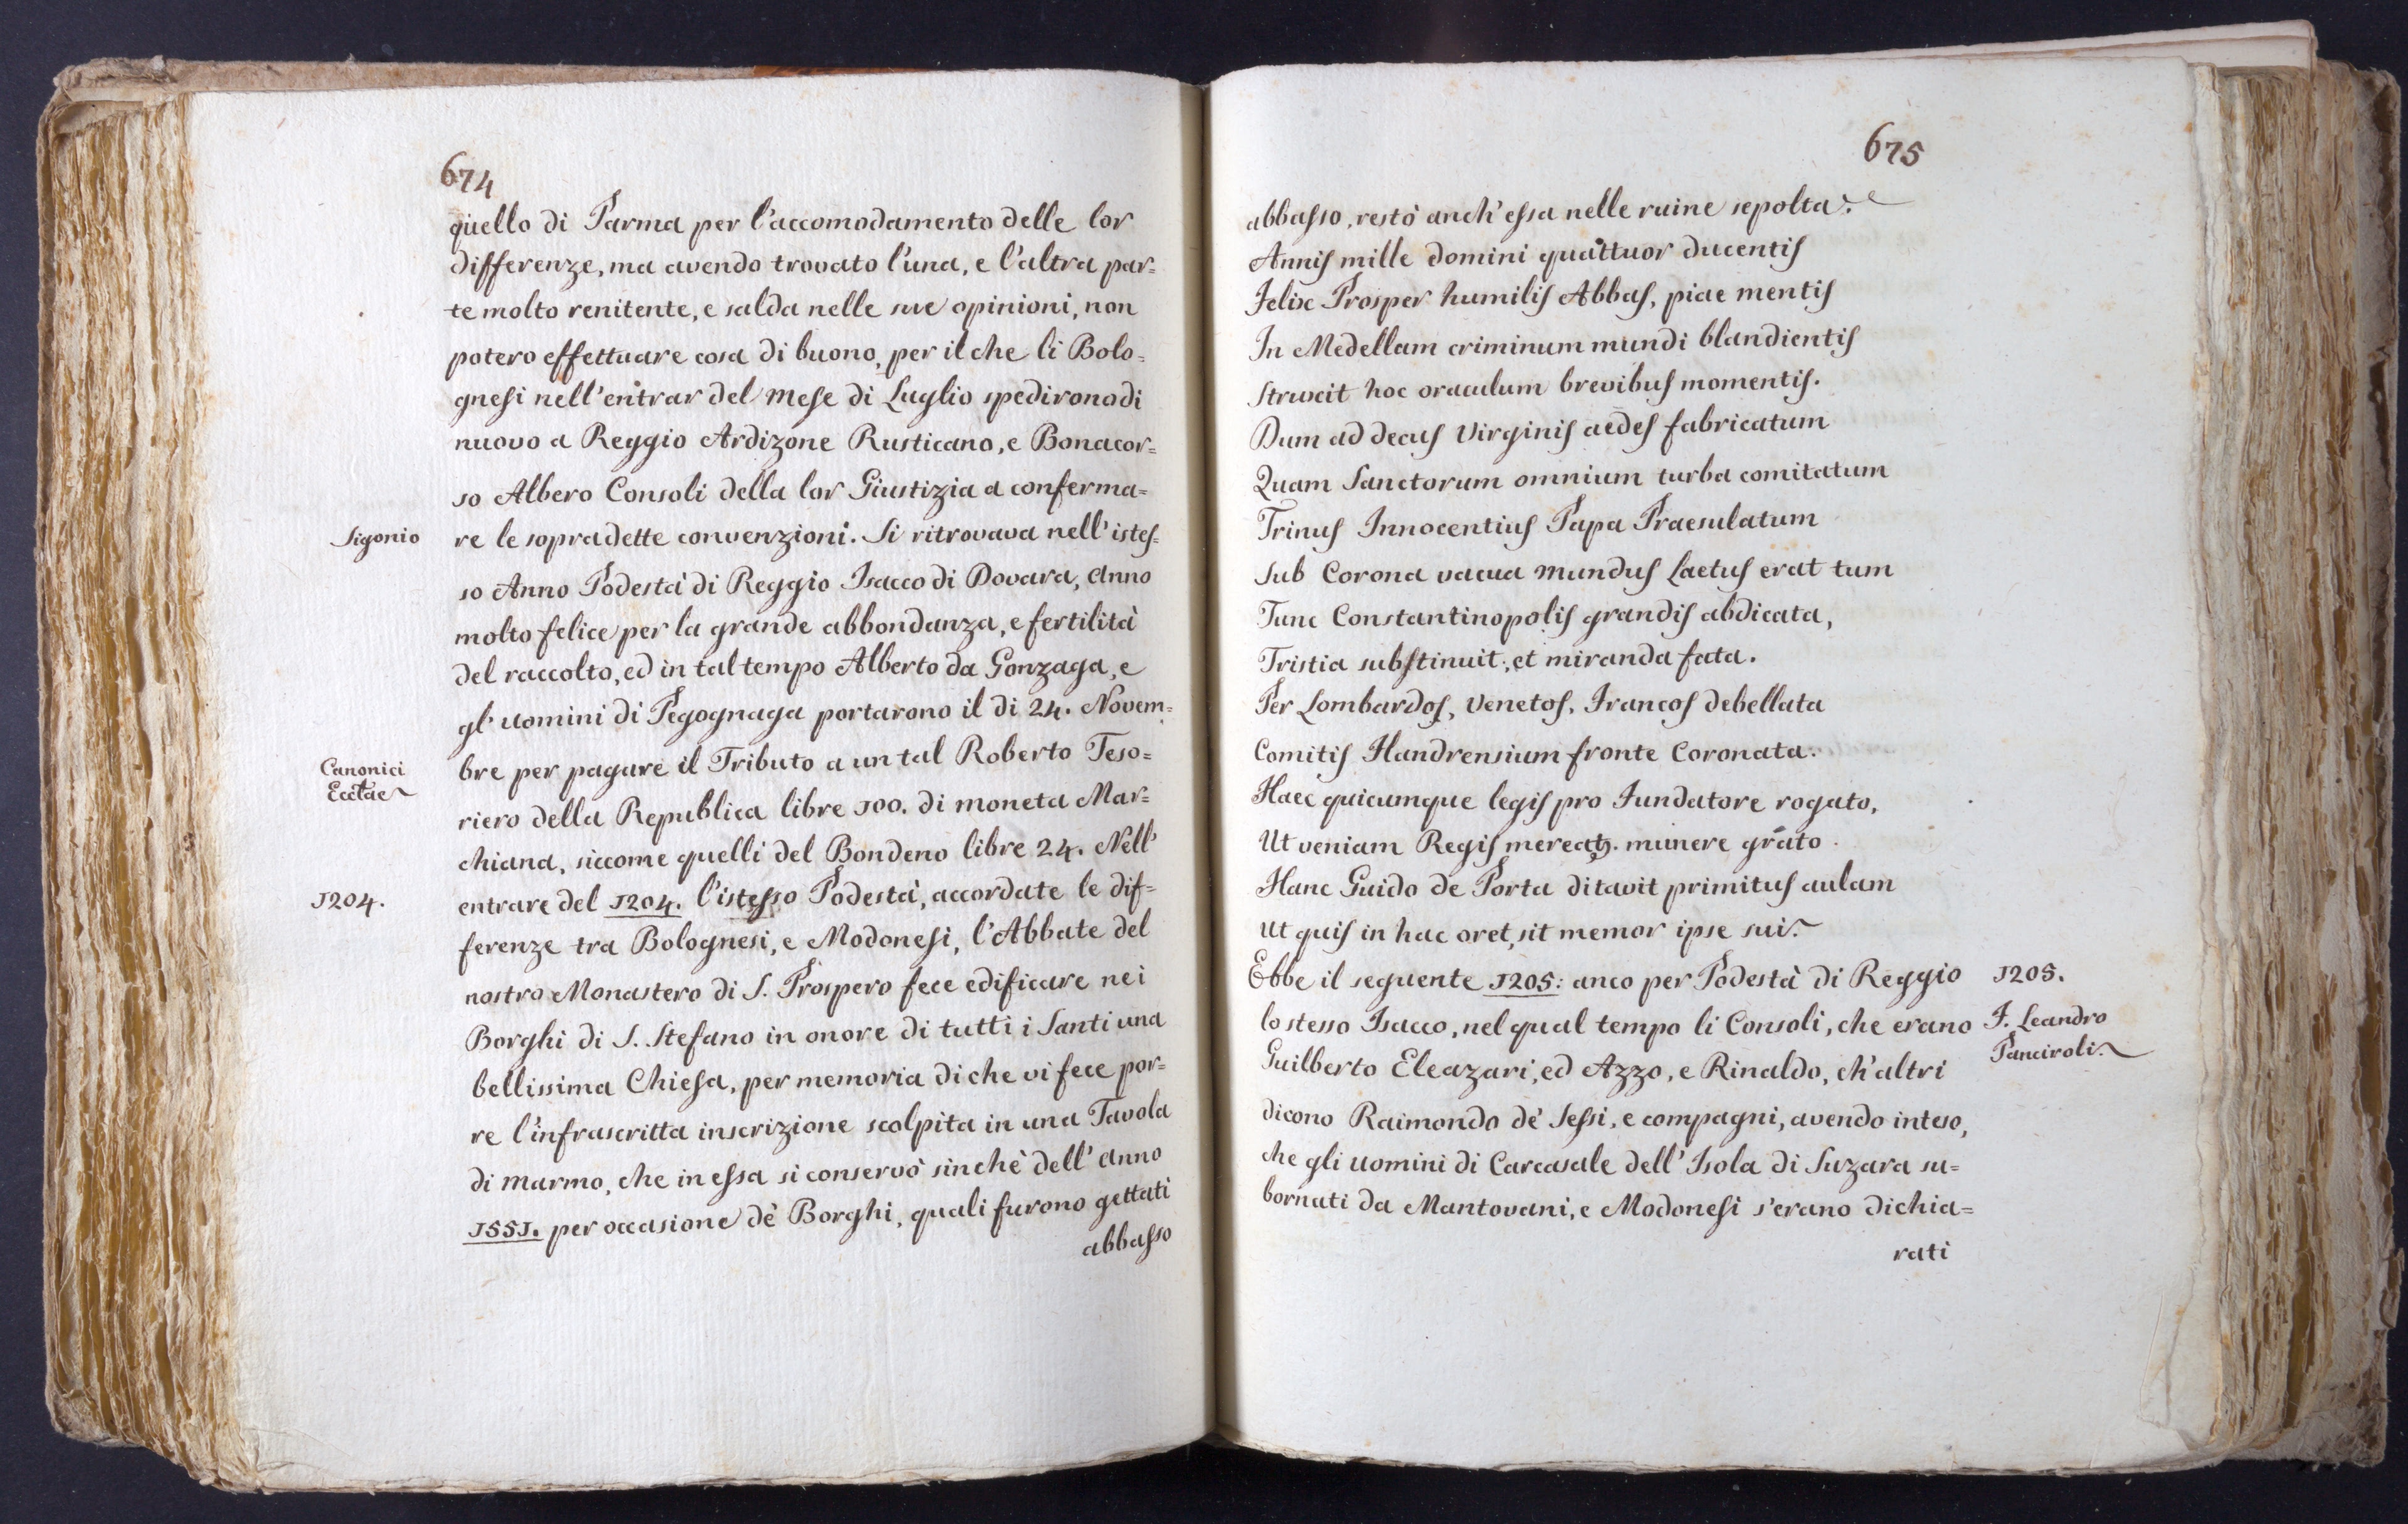 674
quello di Parma per l'accomodamento delle lor
differenze, ma avendo trovato l'una, e l'altra par=
te molto renitente, e salda nelle sue opinioni, non
potero effettuare cosa di buono, per il che li Bolo=
gnesi nell'entrar del mese di Luglio spedirono di
nuovo a Reggio Ardizone Rusticano, e Bonacor=
so Albero Consoli della lor Giustizia a conferma=
Sigonio
re le sopradette convenzioni. Si ritrovava nell'istes=
so Anno Podestà di Reggio Isacco di Dovara, anno
molto felice per la grande abbondanza, e fertilità
del raccolto, ed in tal tempo Alberto da Gonzaga, e
gl'uomini di Pegognaga portarono il di 24. Novem=
Canonici
Ecclae
bre per pagare il Tributo a un tal Roberto Teso=
riero della Republica libre 100. di moneta Mar=
chiana, siccome quelli del Bondeno libre 24. Nell'
1204.
entrare del 1204. l'istesso Podestà, accordate le dif=
ferenze tra Bolognesi, e Modonesi, l'Abbate del
nostro Monastero di S. Prospero fece edificare nei
Borghi di S. Stefano in onore di tutti i Santi una
bellissima Chiesa, per memoria di che vi fece por=
re l'infrascritta inscrizione scolpita in una Tavola
di marmo, che in essa si conservò sinchè dell'anno
1551. per occasione dè Borghi, quali furono gettati
abbasso
675
abbasso, restò anch'essa nelle ruine sepolta.
Annis mille domini quattuor ducentis
Felix Prosper humilis Abbas, piae mentis
In Medellam criminum mundi blandientis
Struxit hoc oraculum brevibus momentis.
Dum ad decus Virginis aedes fabricatum
Quam Sanctorum omnium turba comitatum
Trinus Innocentius Papa Praesulatum
Sub Corona vacua mundus Laetus erat tum
Tunc Constantinopolis grandis abdicata,
Tristia substinuit, et miranda fata.
Per Lombardos, Venetos, Francos debellata
Comitis Flandrensium fronte Coronata.
Haec quicumque legis pro Fundatore rogato,
Ut veniam Regis mereatꝫ. munere grato.
Hanc Guido de Porta ditavit primitus aulam
Ut quis in hac oret, sit memor ipse sui.
Ebbe il seguente 1205: anco per Podestà di Reggio
1205.
lo stesso Isacco, nel qual tempo li Consoli, che erano
F. Leandro
Panciroli.
Guilberto Eleazari, ed Azzo, e Rinaldo, ch'altri
dicono Raimondo dè Sessi, e compagni, avendo inteso,
che gli uomini di Carcasale dell'Isola di Suzara su=
bornati da Mantovani, e Modonesi s'erano dichia=
rati